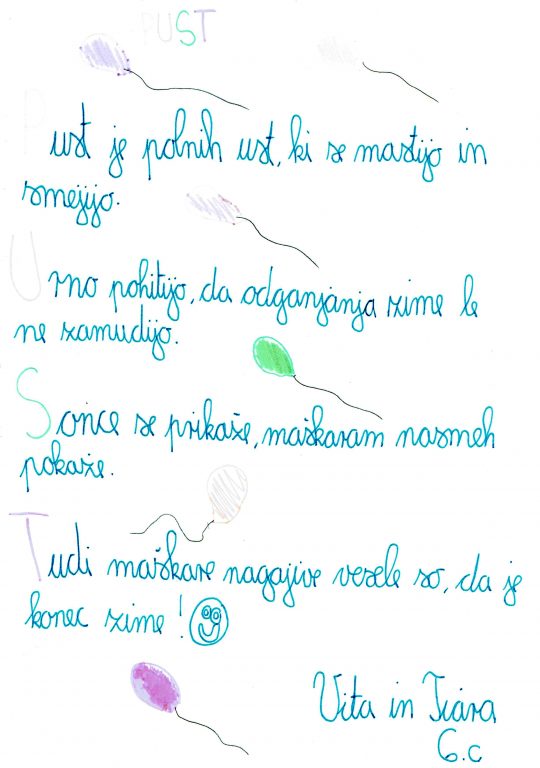 PUST
Pust je polnih ust, ki se mastijo in
smejijo.
Urno pohitijo, da odganjanja zime le
ne zamudijo.
Sonce se prikaže, maškaram nasmeh
pokaže.
Tudi maškare nagajive vesele so, da je
konec zime!
Vita in Tiara
6.c